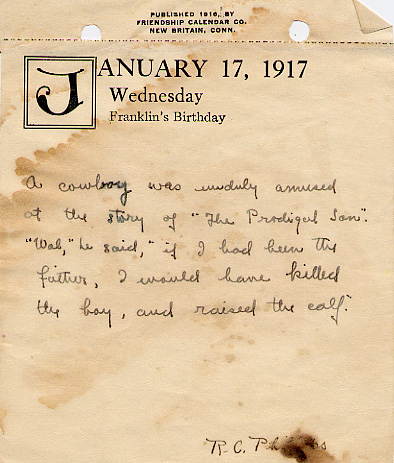 PUBLISHED 1916, BY
FRIENDSHIP CALENDAR CO.
NEW BRITAIN, CONN.
JANUARY 17, 1917
Wednesday
Franklin's Birthday
A cowboy was unduly amused
at the story of "The Prodigal Son".
"Wal," he said, "if I had been the
father, I would have killed
the boy, and raised the calf."
R. C.